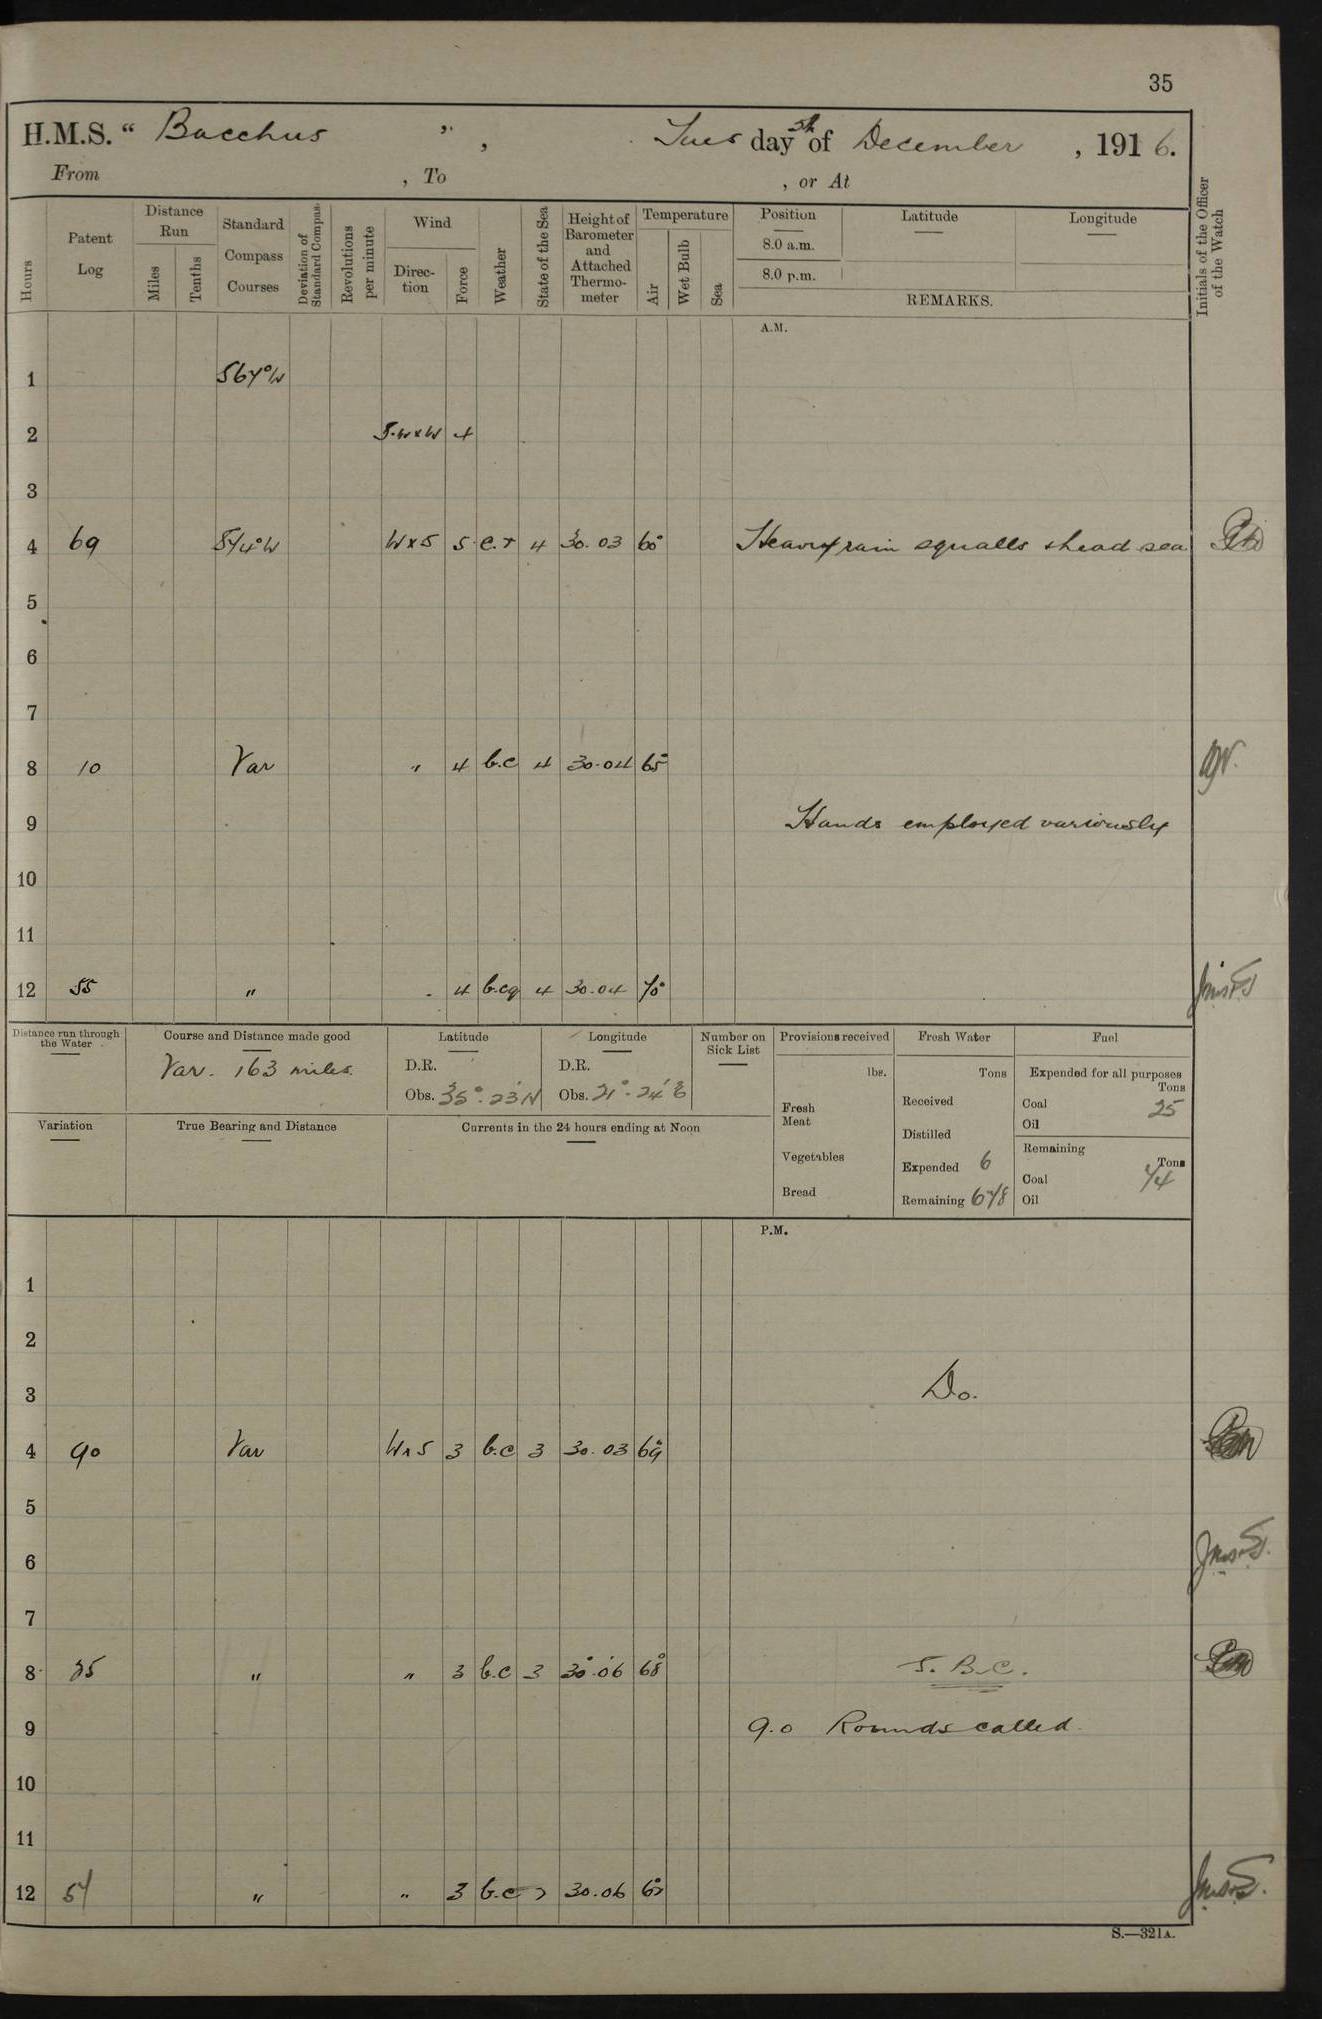 35
H.M.S. “ Bacchus ”, Tues day 5th of December , 1916.
From , To , or At
Hours
Patent Log
Distance Run
Miles
Tenths
Standard Compass Courses
Deviation of Standard Compass
Revolutions per minute
Wind
Direction
Force
Weather
State of the Sea
Height of Barometer and Attached Thermometer
Temperature
Air
Wet Bulb
Sea
Position
8.0 a.m.
8.0 p.m.
Latitude
Longitude
REMARKS.
Initials of the Officer of the Watch
A.M.
1 S67°W
2 S.W x W 4
3
4 69 S74°W W x S 5 c.r 4 30.03 60° Heavy rain squalls & head sea
5
6
7
8 10 Var " 4 b.c 4 30.04 65°
9 Hands employed variously
10
11
12 55 " 4 b.cq 4 30.04 70°
Distance run through the Water
Course and Distance made good
Var. 163 miles.
Latitude
D.R.
Obs. 35° 23' N
Longitude
D.R.
Obs. 21° 24' E
Number on Sick List
Provisions received
lbs.
Fresh Meat
Vegetables
Bread
Fresh Water
Tons
Received
Distilled
Expended 6
Remaining 678
Fuel
Expended for all purposes
Tons
Coal 25
Oil
Remaining
Tons
Coal 74
Oil
Variation
True Bearing and Distance
Currents in the 24 hours ending at Noon
P.M.
1
2
3 Do.
4 90 Var W x S 3 b.c 3 30.03 69°
5
6
7
8 25 " " 3 b.c 3 30.06 68° S.B.C.
9 9.0 Rounds called.
10
11
12 57 " " 3 b.c 30.06
S.—321A.